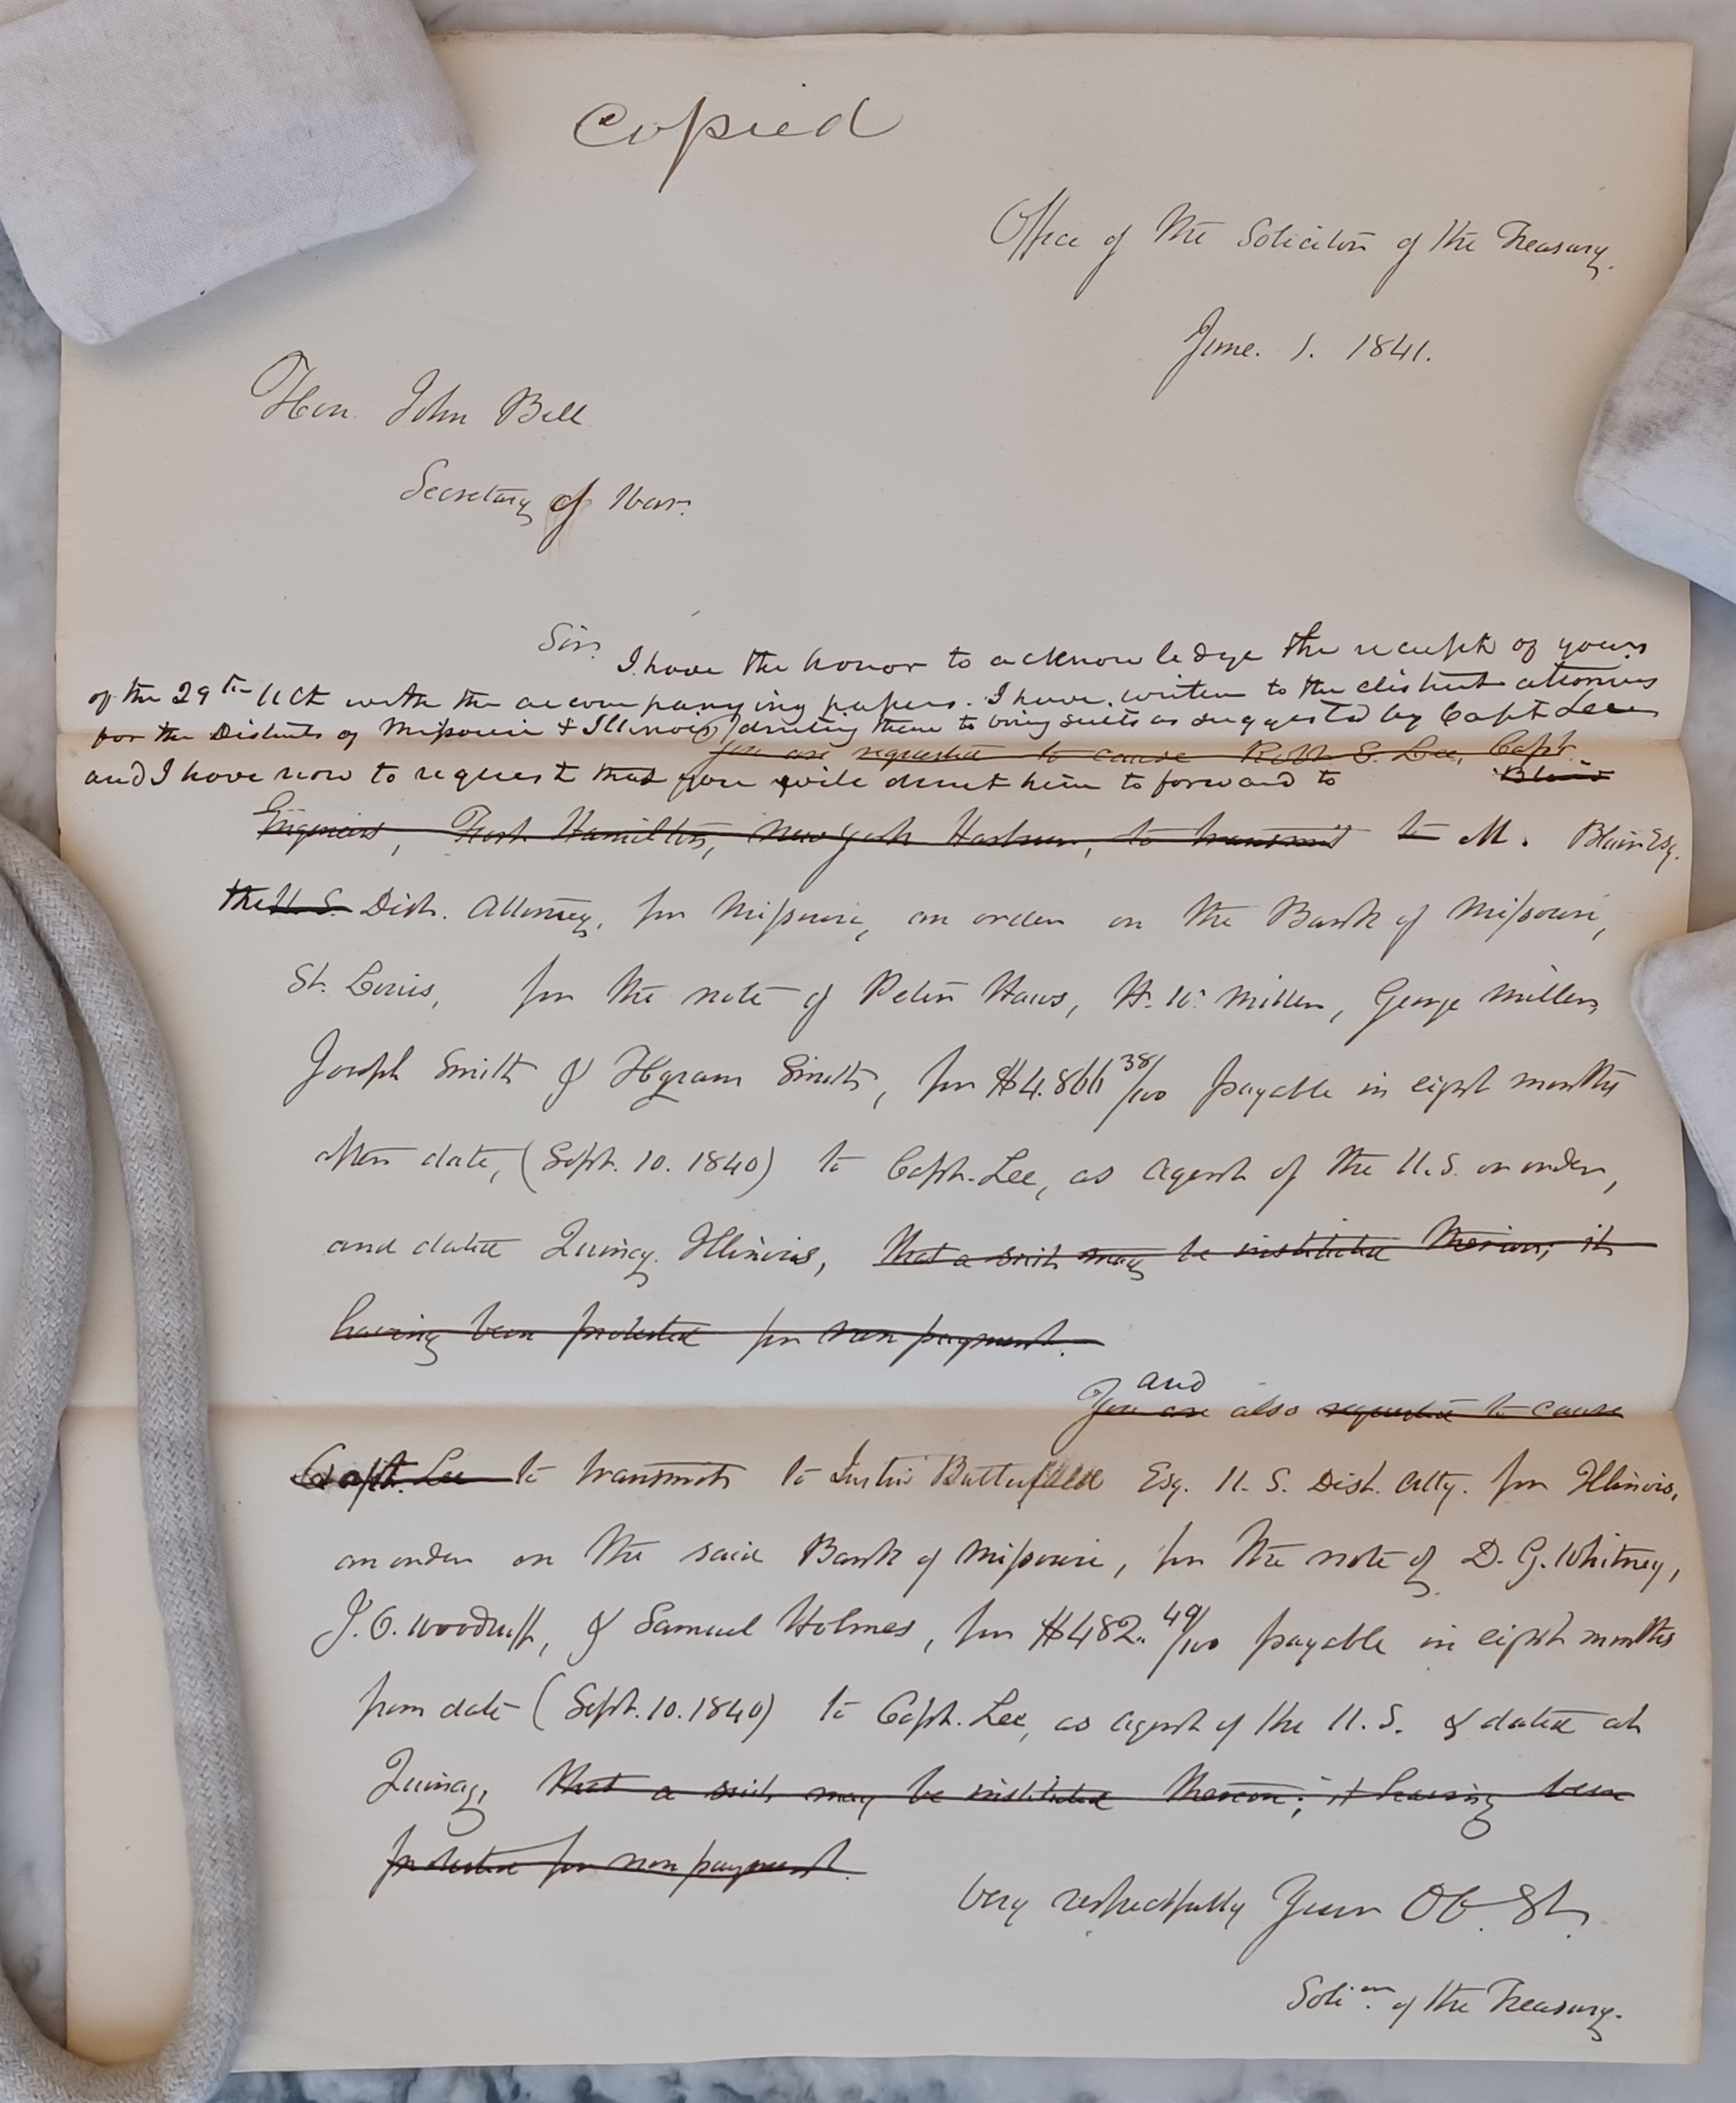 Copied
Office of the Solicitor of the Treasury.
June. 1. 1841.
Hon. John Bell
Secretary of War.
Sir. I have the honor to acknowledge the receipt of yours
of the 29th Ult with the accompanying papers. I have written to the district attornies
for the Districts of Missouri & Illinois directing them to bring suits as suggested by Capt Lee
you are requested to cause Robt. E. Lee, Capt.
and I have now to request that you will direct him to forward to Blair
Engineers, Fort Hamilton, New York Harbour, to transmit to M. Blair Esq.
the U.S. Dist. Attorney, for Missouri, an order on the Bank of Missouri,
St. Louis, for the note of Peter Haws, H. W. Miller, George Miller,
Joseph Smith & Hyram Smith, for $4.866 38/100 payable in eight months
after date, (Sept. 10. 1840) to Capt. Lee, as Agent of the U.S. or order,
and dated Quincy. Illinois, that a suit may be instituted thereon; it
having been protested for non payment.
and
You are also requested to cause
Capt. Lee to transmit to Justin Butterfield Esq. U. S. Dist. Atty. for Illinois,
an order on the said Bank of Missouri, for the note of D. G. Whitney,
J. O. Woodruff, & Samuel Holmes, for $482. 49/100 payable in eight months
from date (Sept. 10. 1840) to Capt. Lee, as agent of the U.S. & dated at
Quincy, that a suit may be instituted thereon; it having been
protested for non payment.
Very respectfully Your Ob. St.
Soli.or of the Treasury.